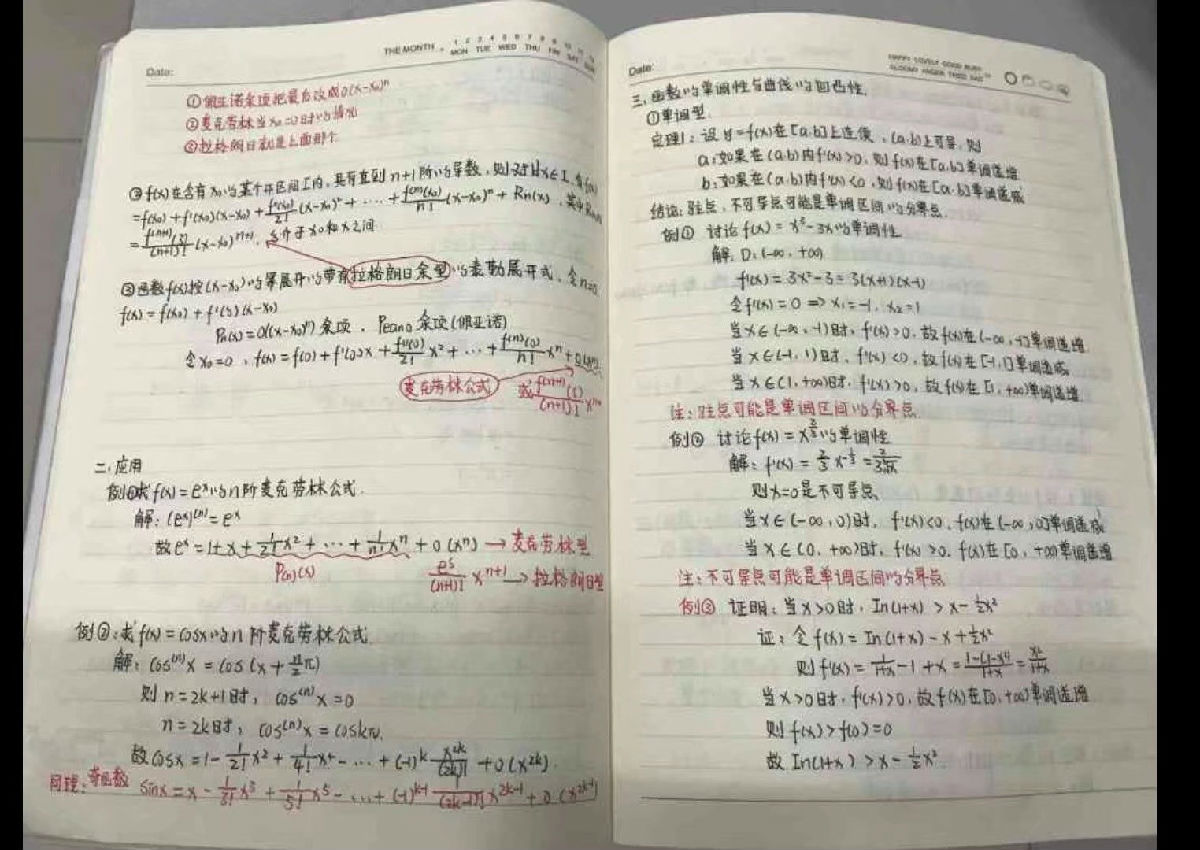 Date:
THE MONTH
1 2 3 4 5 6 7 8 9 10 11
MON TUE WED THU FRI SAT
①佩亚诺余项把最后改成o(x-x₀)ⁿ
②麦克劳林当x₀=0时的情况
③拉格朗日就是上面那个
②f(x)在含有x₀的某个开区间I内,具有直到n+1阶的导数,则对∀x∈I,有f(x)
=f(x₀)+f'(x₀)(x-x₀)+f''(x₀)/2!(x-x₀)²+……+f⁽ⁿ⁾(x₀)/n!(x-x₀)ⁿ+Rn(x),其中Rn(x)
=f⁽ⁿ⁺¹⁾(ξ)/(n+1)!(x-x₀)ⁿ⁺¹,ξ介于x₀和x之间
③函数f(x)按(x-x₀)的幂展开的带有拉格朗日余型的泰勒展开式,令n=0
f(x)=f(x₀)+f'(ξ)(x-x₀)
Rn(x)=o((x-x₀)ⁿ)余项,Peano余项(佩亚诺)
令x₀=0,f(x)=f(0)+f'(0)x+f''(0)/2!x²+…+f⁽ⁿ⁾(0)/n!xⁿ+o(xⁿ)
麦克劳林公式 或f⁽ⁿ⁺¹⁾(ξ)/(n+1)!xⁿ⁺¹
二,应用
例①求f(x)=eˣ的n阶麦克劳林公式.
解:(eˣ)⁽ⁿ⁾=eˣ
故eˣ=1+x+1/2!x²+…+1/n!xⁿ+o(xⁿ)→麦克劳林型
P(n)(x) e^ξ/(n+1)!xⁿ⁺¹→拉格朗日型
例②:求f(x)=cosx的n阶麦克劳林公式.
解:cos⁽ⁿ⁾x=cos(x+n/2π)
则n=2k+1时,cos⁽ⁿ⁾x=0
n=2k时,cos⁽ⁿ⁾x=coskπ.
故cosx=1-1/2!x²+1/4!x⁴-…+(-1)ᵏx²ᵏ/(2k)!+o(x²ᵏ).
同理:奇函数 sinx=x-1/3!x³+1/5!x⁵-…+(-1)ᵏ⁻¹1/(2k-1)!x²ᵏ⁻¹+o(x²ᵏ⁻¹)
Date:
HAPPY LOVELY GOOD BUSY
GLOOMY ANGER TIRED SAD
三,函数的单调性与曲线的凹凸性.
①单调型.
定理1:设y=f(x)在[a,b]上连续,(a,b)上可导,则
a:如果在(a,b)内f'(x)>0,则f(x)在[a,b]单调递增
b:如果在(a,b)内f'(x)<0,则f(x)在[a,b]单调递减
结论:驻点,不可导点可能是单调区间的分界点.
例① 讨论f(x)=x³-3x的单调性.
解:D:(-∞,+∞)
f'(x)=3x²-3=3(x+1)(x-1)
令f'(x)=0⇒x₁=-1,x₂=1
当x∈(-∞,-1)时,f'(x)>0,故f(x)在(-∞,-1]单调递增
当x∈(-1,1)时,f'(x)<0,故f(x)在[-1,1]单调递减
当x∈(1,+∞)时,f'(x)>0,故f(x)在[1,+∞)单调递增
注:驻点可能是单调区间的分界点
例② 讨论f(x)=x^(2/3)的单调性
解:f'(x)=2/3x^(-1/3)=2/(3∛x)
则x=0是不可导点
当x∈(-∞,0)时,f'(x)<0,f(x)在(-∞,0]单调递减
当x∈(0,+∞)时,f'(x)>0,f(x)在[0,+∞)单调递增
注:不可导点可能是单调区间的分界点
例③ 证明:当x>0时,In(1+x)>x-1/2x²
证:令f(x)=In(1+x)-x+1/2x²
则f'(x)=1/(1+x)-1+x=(1-(1-x²))/(1+x)=x²/(1+x)
当x>0时,f'(x)>0,故f(x)在[0,+∞)单调递增
则f(x)>f(0)=0
故In(1+x)>x-1/2x².